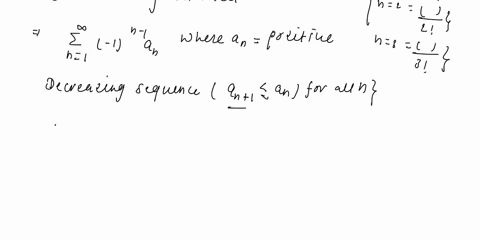 n=2 = ( ) / 2! }
⇒ ∑_{n=1}^{∞} (-1)^{n-1} a_n where a_n = positive
n=3 = ( ) / 3! }
Decreasing sequence ( a_{n+1} ≤ a_n ) for all n }